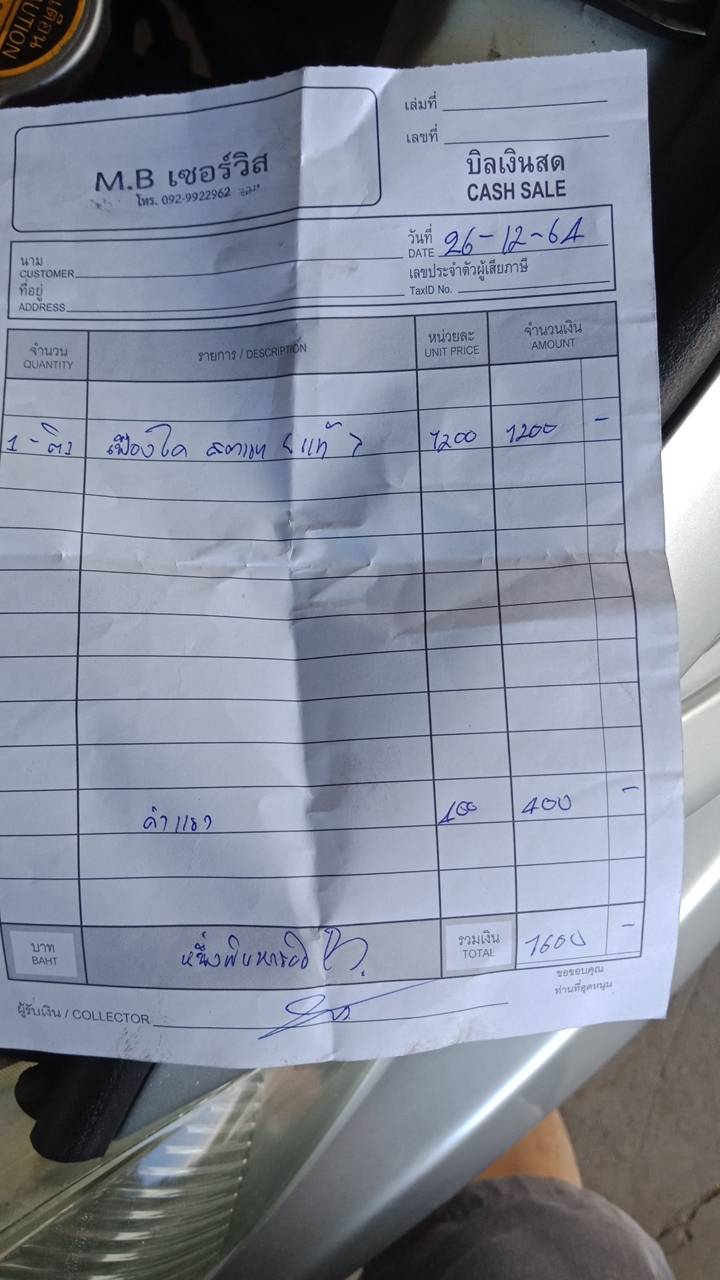 เล่มที่
เลขที่
M.B เซอร์วิส
โทร. 092-9922962
บิลเงินสด
CASH SALE
วันที่
DATE 26-12-64
นาม
CUSTOMER
เลขประจำตัวผู้เสียภาษี
TaxID No.
ที่อยู่
ADDRESS
จำนวน
QUANTITY
รายการ / DESCRIPTION
หน่วยละ
UNIT PRICE
จำนวนเงิน
AMOUNT
1 - ตัว เฟืองไดสตาท (แท้) 1200 1200 -
ค่าแรง 400 400 -
บาท
BAHT
หนึ่งพันหกร้อย
รวมเงิน
TOTAL
1600 -
ขอขอบคุณ
ท่านที่อุดหนุน
ผู้รับเงิน / COLLECTOR